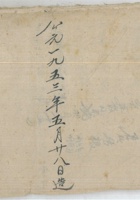 公元一九五三年五月廿八日造